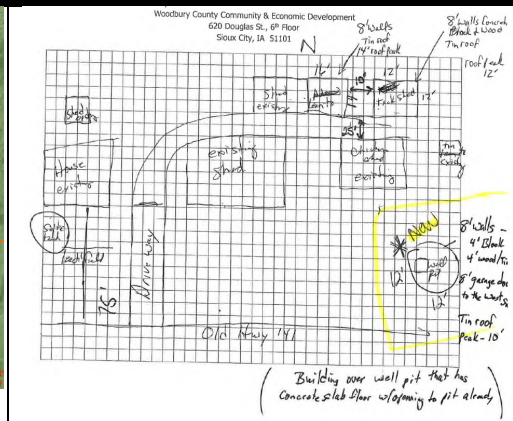 Woodbury County Community & Economic Development
620 Douglas St., 6th Floor
Sioux City, IA 51101
N
8' walls
Tin roof
14' roof peak
8' walls Concrete
Block & Wood
Tin roof
roof peak
12'
16'
10'
12'
12'
Shed
existing
Lean to
25'
Shed
House
existing
existing
Shed
shed
existing
Tin
existing
Septic
tank
Leach field
76'
Drive way
New
12'
well
pit
12'
8' walls -
4' Block
4' wood/Tin
8' garage door
to the west side
Tin roof
Peak - 10'
Old Hwy 141
Building over well pit that has
Concrete slab floor w/opening to pit already